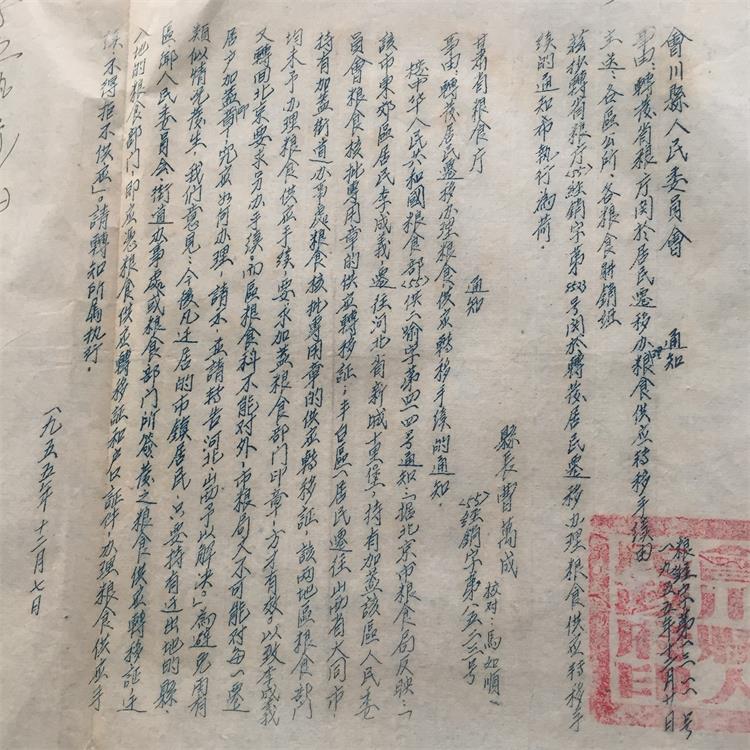 會川縣人民委員會 通知
事由:轉發省粮庁関於居民遷移办理粮食供应转移手续由
粮
一九五五年十二月
主送:各區公所、各粮食购销組
兹抄轉省粮庁<55>经銷字第5523号関於轉發居民遷移办理粮食供应转移手
续的通知希执行為荷。
縣長曹萬成
校对:馬如順
甘肅省粮食庁 通知
<55>经銷字第
事由:轉發居民遷移办理粮食供应轉移手续的通知。
接中华人民共和國粮食部<55>供二喻字第四一四号通知:“据北京市粮食局反映:“
該市東郊區居民李成義遷往河北省新城十里堡,持有加盖該區人民委
員會粮食核批專用章的供应轉移証;丰台區一居民遷往山西省大同市,
持有加盖街道办事處粮食核批專用章的供应轉移証,該两地區粮食部門
均未予办理粮食供应手续,要求加盖粮食部門印章,方才有效。以致李成義
又轉回北京要求另办手续,而區粮食科不能对外,市粮局又不可能对每一遷
居户加盖印章,究应如何办理,請示並請转告河北、山西予以解决。”為避免再有
類似情况發生,我們意見:今後凡迁居的市鎮居民,只要持有迁出地的縣、
區、鄉人民委員会街道办事處或粮食部門所簽發之粮食供应轉移証,迁
入地的粮食部門,即应憑粮食供应轉移証和户口証件,办理粮食供应手
续,不得拒不供应”。請轉知所屬执行。
一九五五年十二月七日